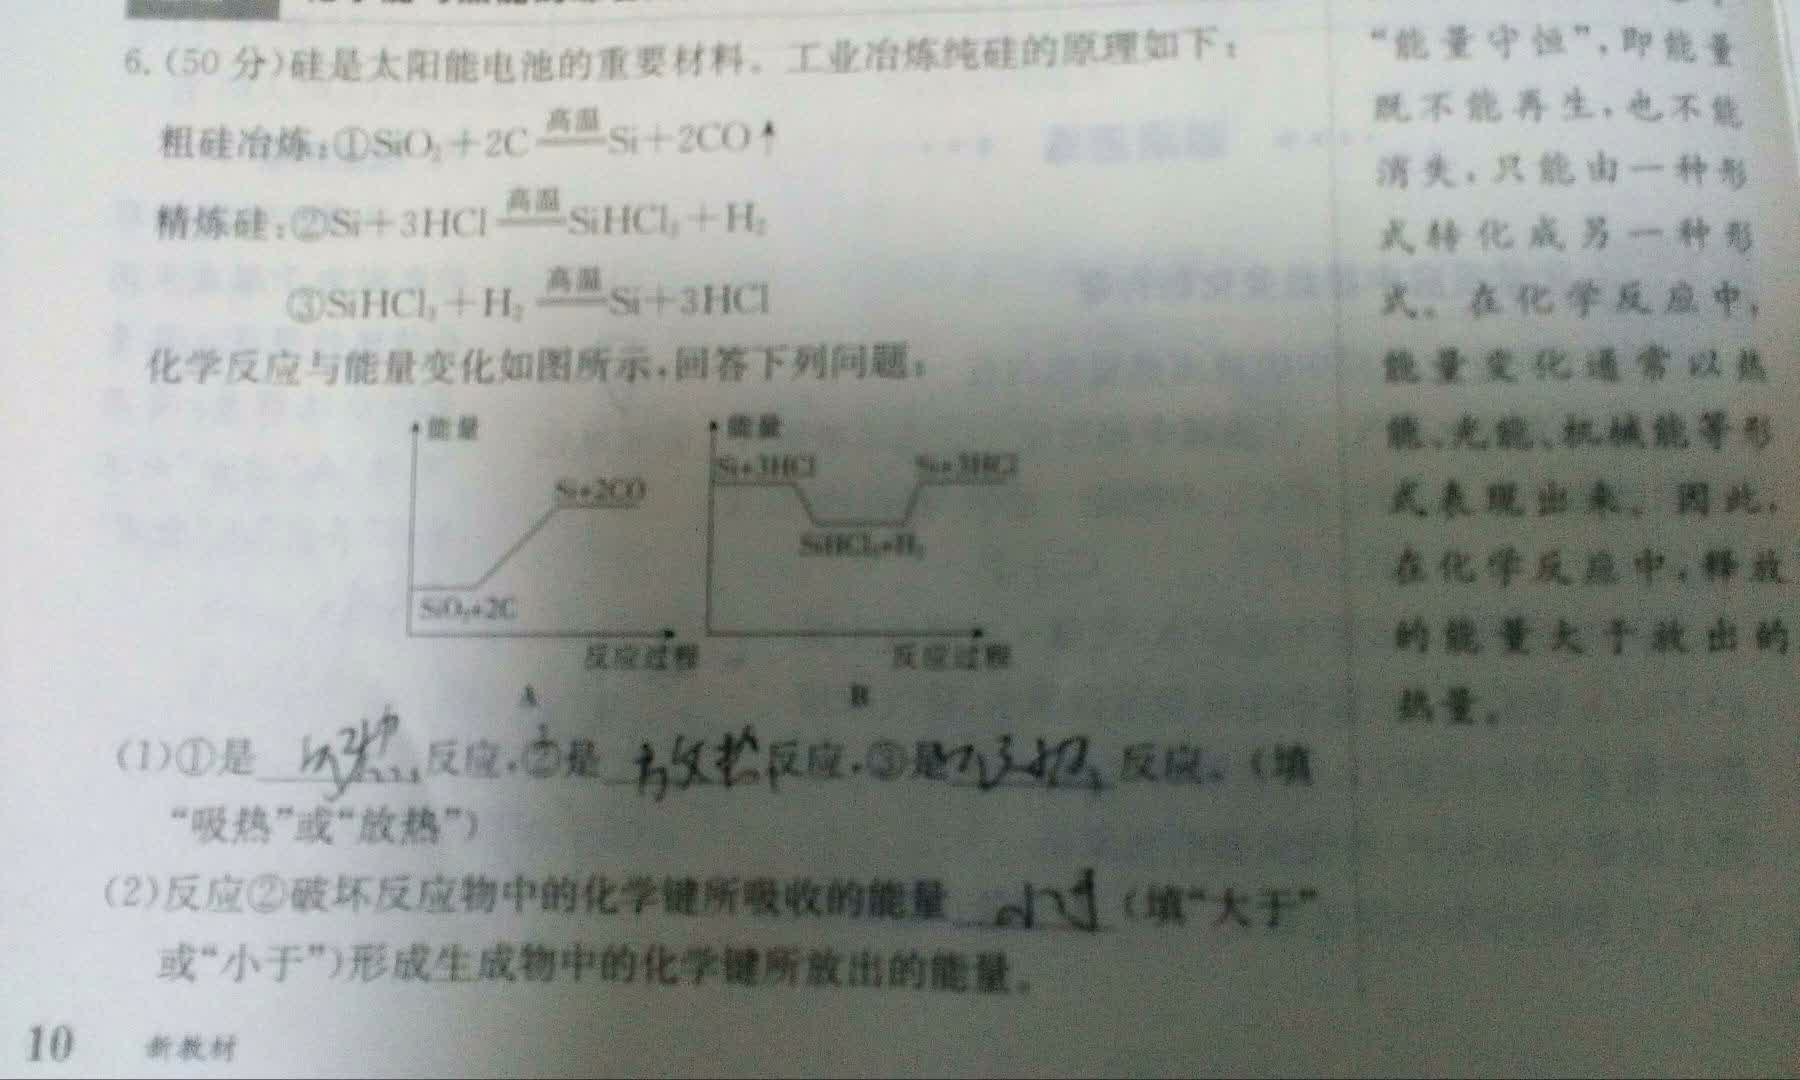 6.(50分)硅是太阳能电池的重要材料。工业冶炼纯硅的原理如下:
粗硅冶炼:①SiO₂+2C 高温 Si+2CO↑
精炼硅:②Si+3HCl 高温 SiHCl₃+H₂
③SiHCl₃+H₂ 高温 Si+3HCl
化学反应与能量变化如图所示,回答下列问题:
能量
Si+2CO
SiO₂+2C
反应过程
A
能量
Si+3HCl
Si+3HCl
SiHCl₃+H₂
反应过程
B
(1)①是 吸热 反应,②是 放热 反应,③是 吸热 反应。(填
“吸热”或“放热”)
(2)反应②破坏反应物中的化学键所吸收的能量 小于 (填“大于”
或“小于”)形成生成物中的化学键所放出的能量。
10 新教材
“能量守恒”,即能量
既不能再生,也不能
消失,只能由一种形
式转化成另一种形
式。在化学反应中,
能量变化通常以热
能、光能、机械能等形
式表现出来。因此,
在化学反应中,释放
的能量大于放出的
热量。